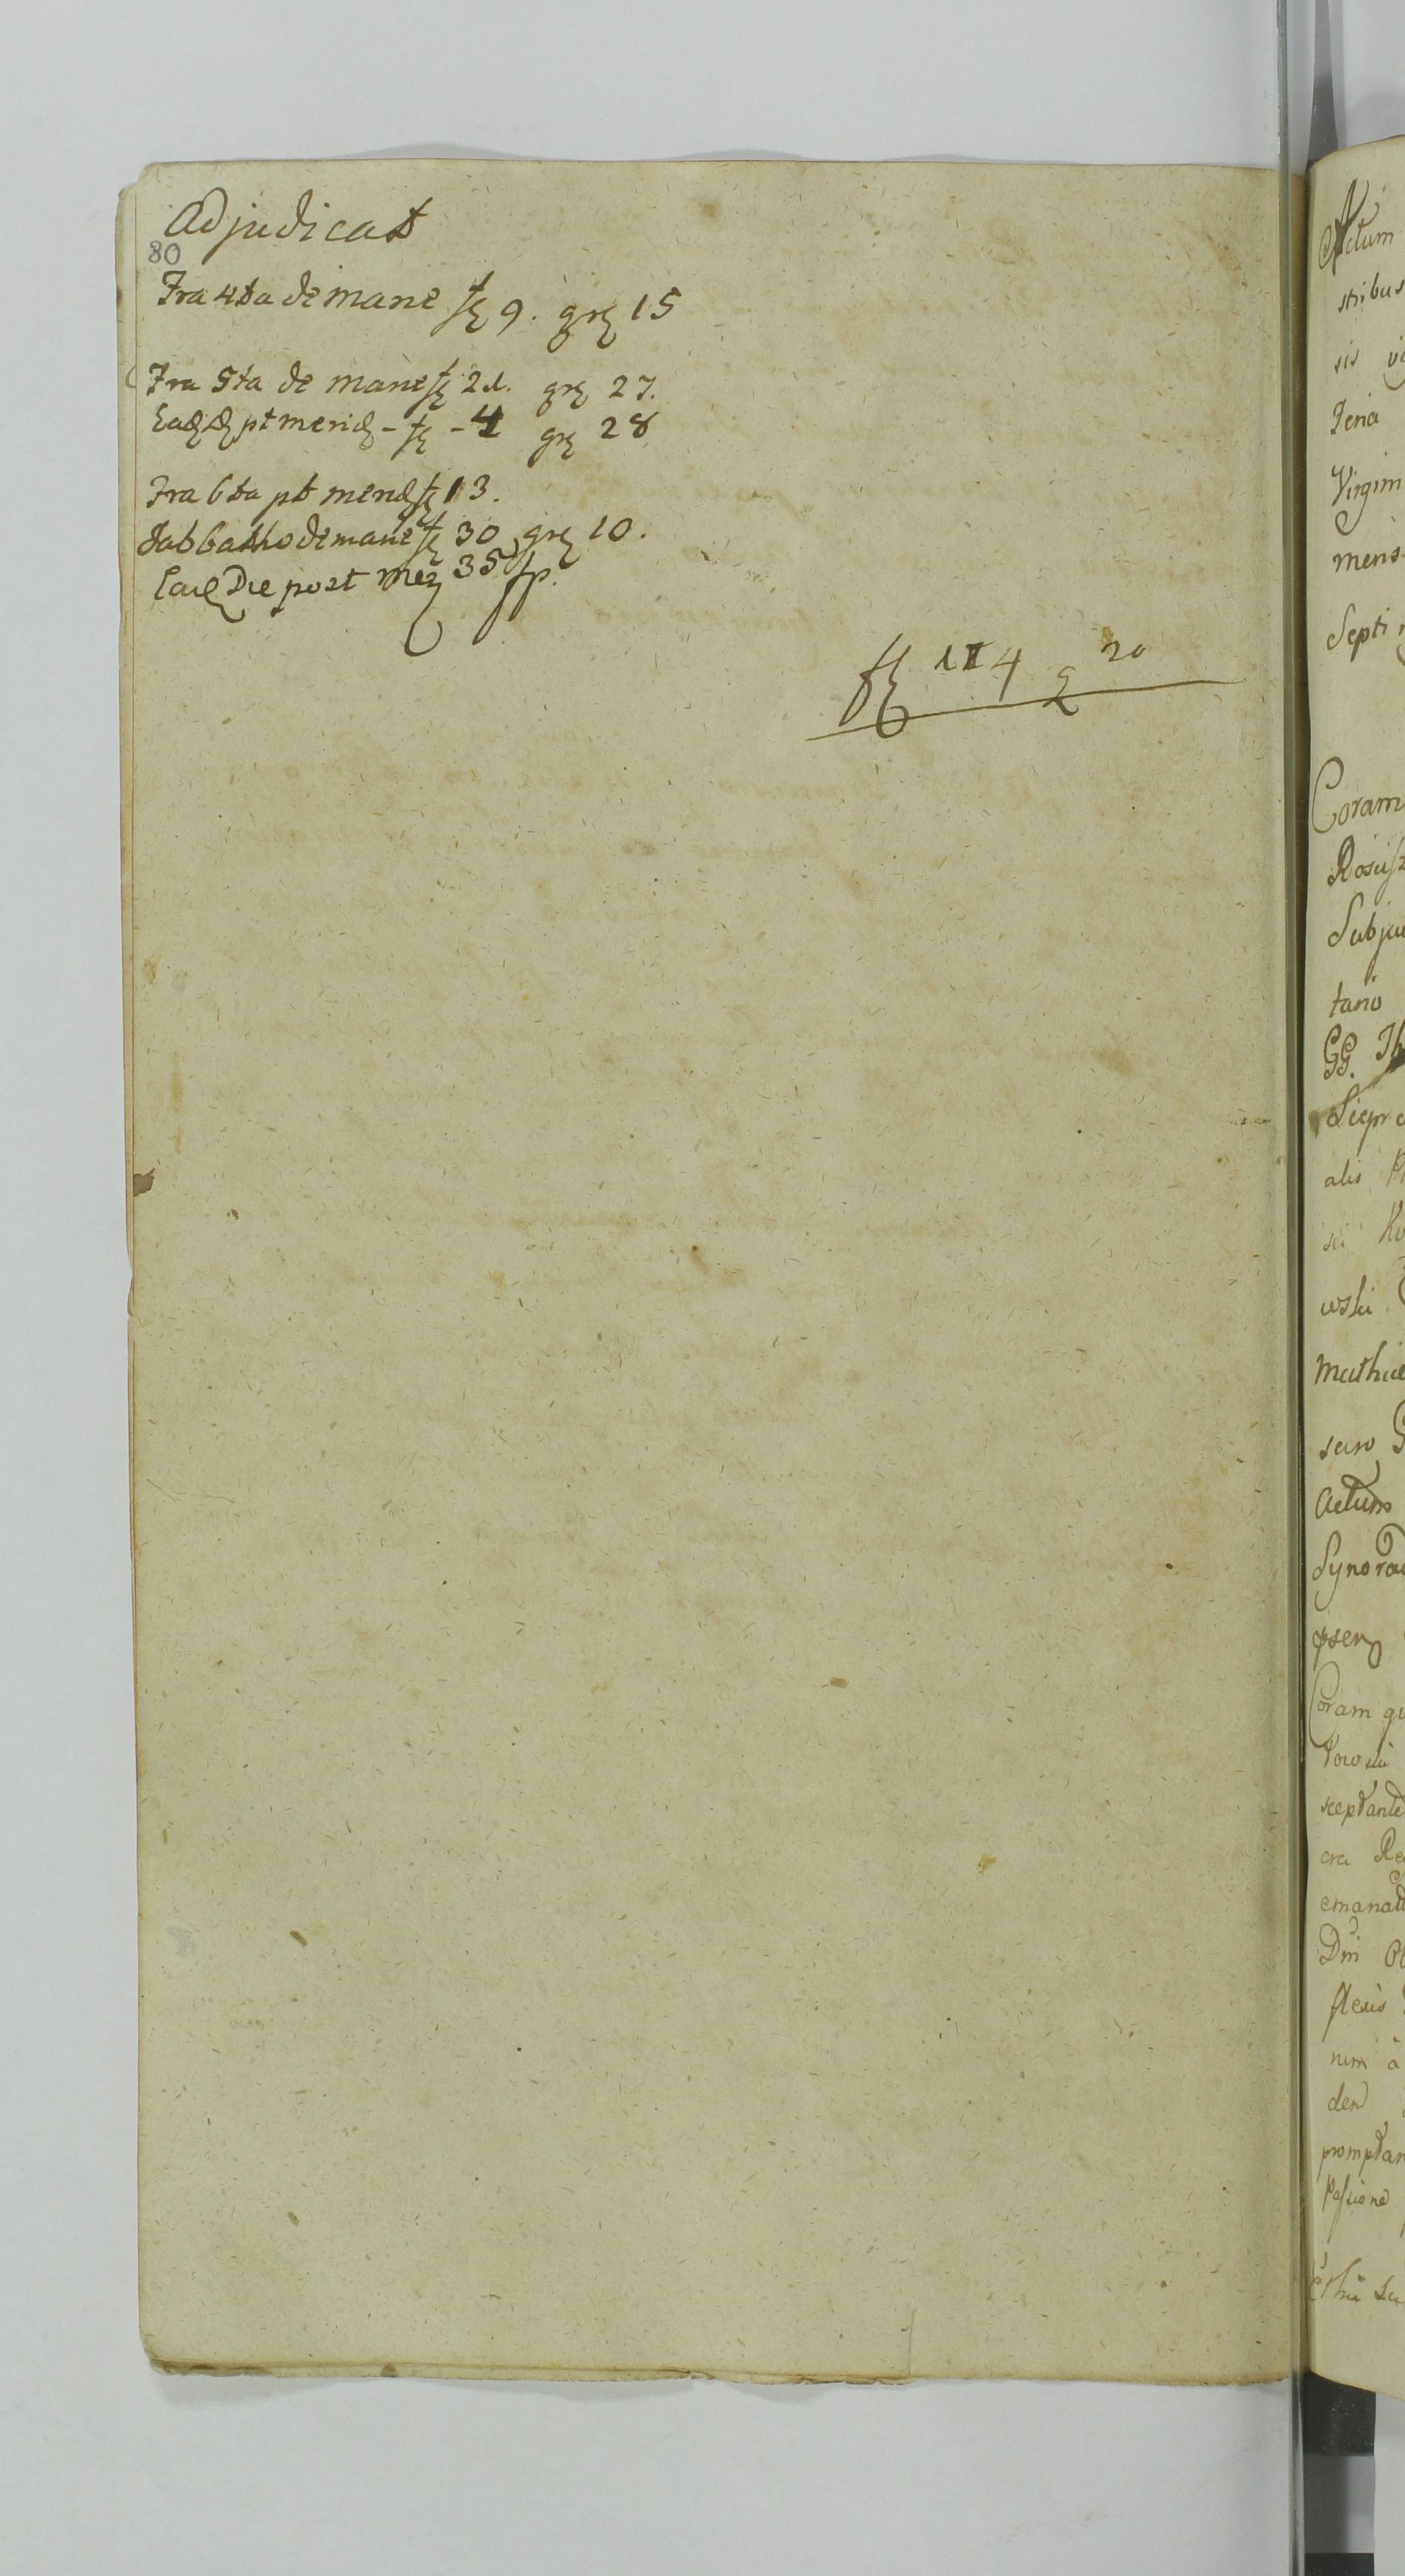 Adjudicat
80
Fra 4ta de mane fl 9. gr 15
Fra 5ta de mane fl 21. gr 27.
Ead D pt merid - fl - 4 gr 28
Fra 6ta pt merid fl 13.
Sabbatho de mane fl 30 gr 10.
Ead Die post mer 35 fp.
fl 114 g 20
Actum
stribus
sis
Feria
Virgini
mens
Septi
Coram
Rosis
Subju
tario
GG. Th
Siepr
alis
sci
wski
Mathia
saro
Actum
Synora
psen
Coram qu
kowski
sceptante
cra Re
emanat
Dni
flexis
num a
den
promptar
Passione